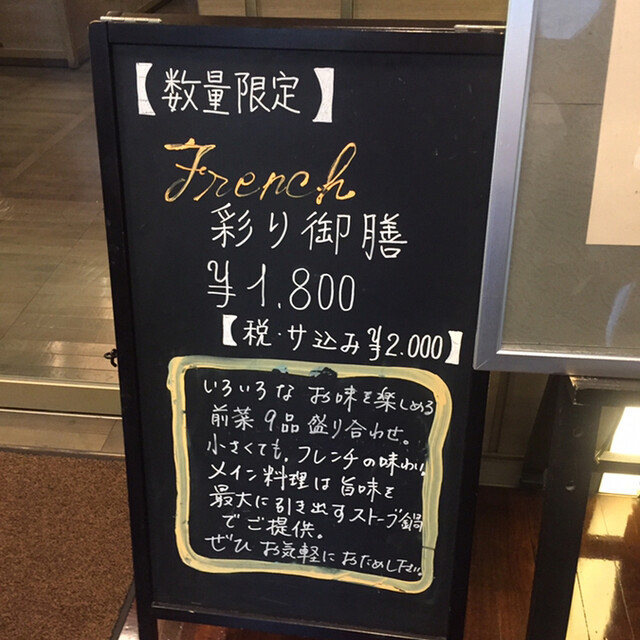 【数量限定】
French
彩り御膳
¥1,800
【税・サ込み¥2.000】
いろいろな お味を楽しめる
前菜9品盛り合わせ。
小さくても、フレンチの味わい。
メイン料理は旨味を
最大に引き出すストーブ鍋
でご提供。
ぜひ お気軽に おためし下さい。